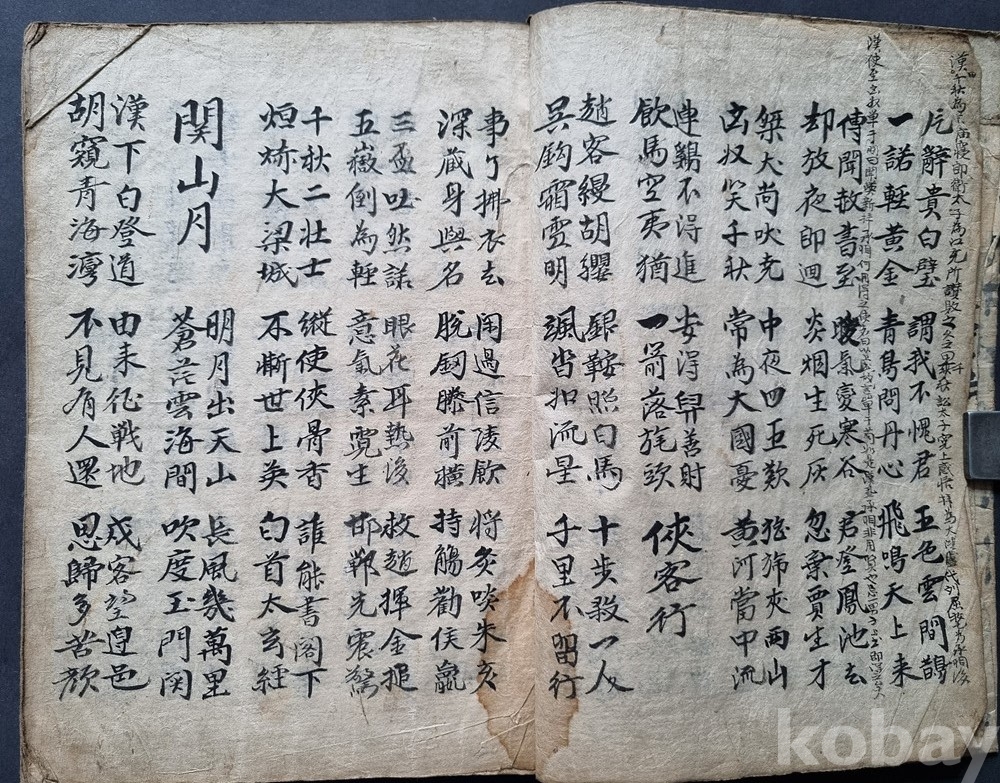 片辭貴白璧 謂我不愧君 五色雲間鵲
一諾輕黃金 青鳥問丹心 飛鳴天上来
傳聞赦書至 暖氣變寒谷 君登鳳池去
却放夜郎迴 炎烟生死灰 忽棄賈生才
桀犬尚吠尭 中夜四五歎 旌旆夾両山
凶奴笑千秋 常為大國憂 黄河當中流
連鷄不得進 安得羿善射
飲馬空夷猶 一箭落旄頭
俠客行
趙客縵胡纓 銀鞍照白馬 十步殺一人
吳鈎霜雪明 颯沓扣流星 千里不畱行
事了拂衣去 閑過信陵飲 將炙啖朱亥
深蔵身與名 脫劒膝前橫 持觴勸侯嬴
三盃吐然諾 眼花耳熱後 救趙揮金槌
五嶽倒為軽 意氣素霓生 邯鄲先震驚
千秋二壮士 縱使俠骨香 誰能書閣下
烜烠大梁城 不慚世上英 白首太玄経
関山月
明月出天山 長風幾萬里
蒼茫雲海間 吹度玉門関
漢下白登道 由来征戦地 戍客望邉邑
胡窺青海灣 不見有人還 思歸多苦顔
kobay